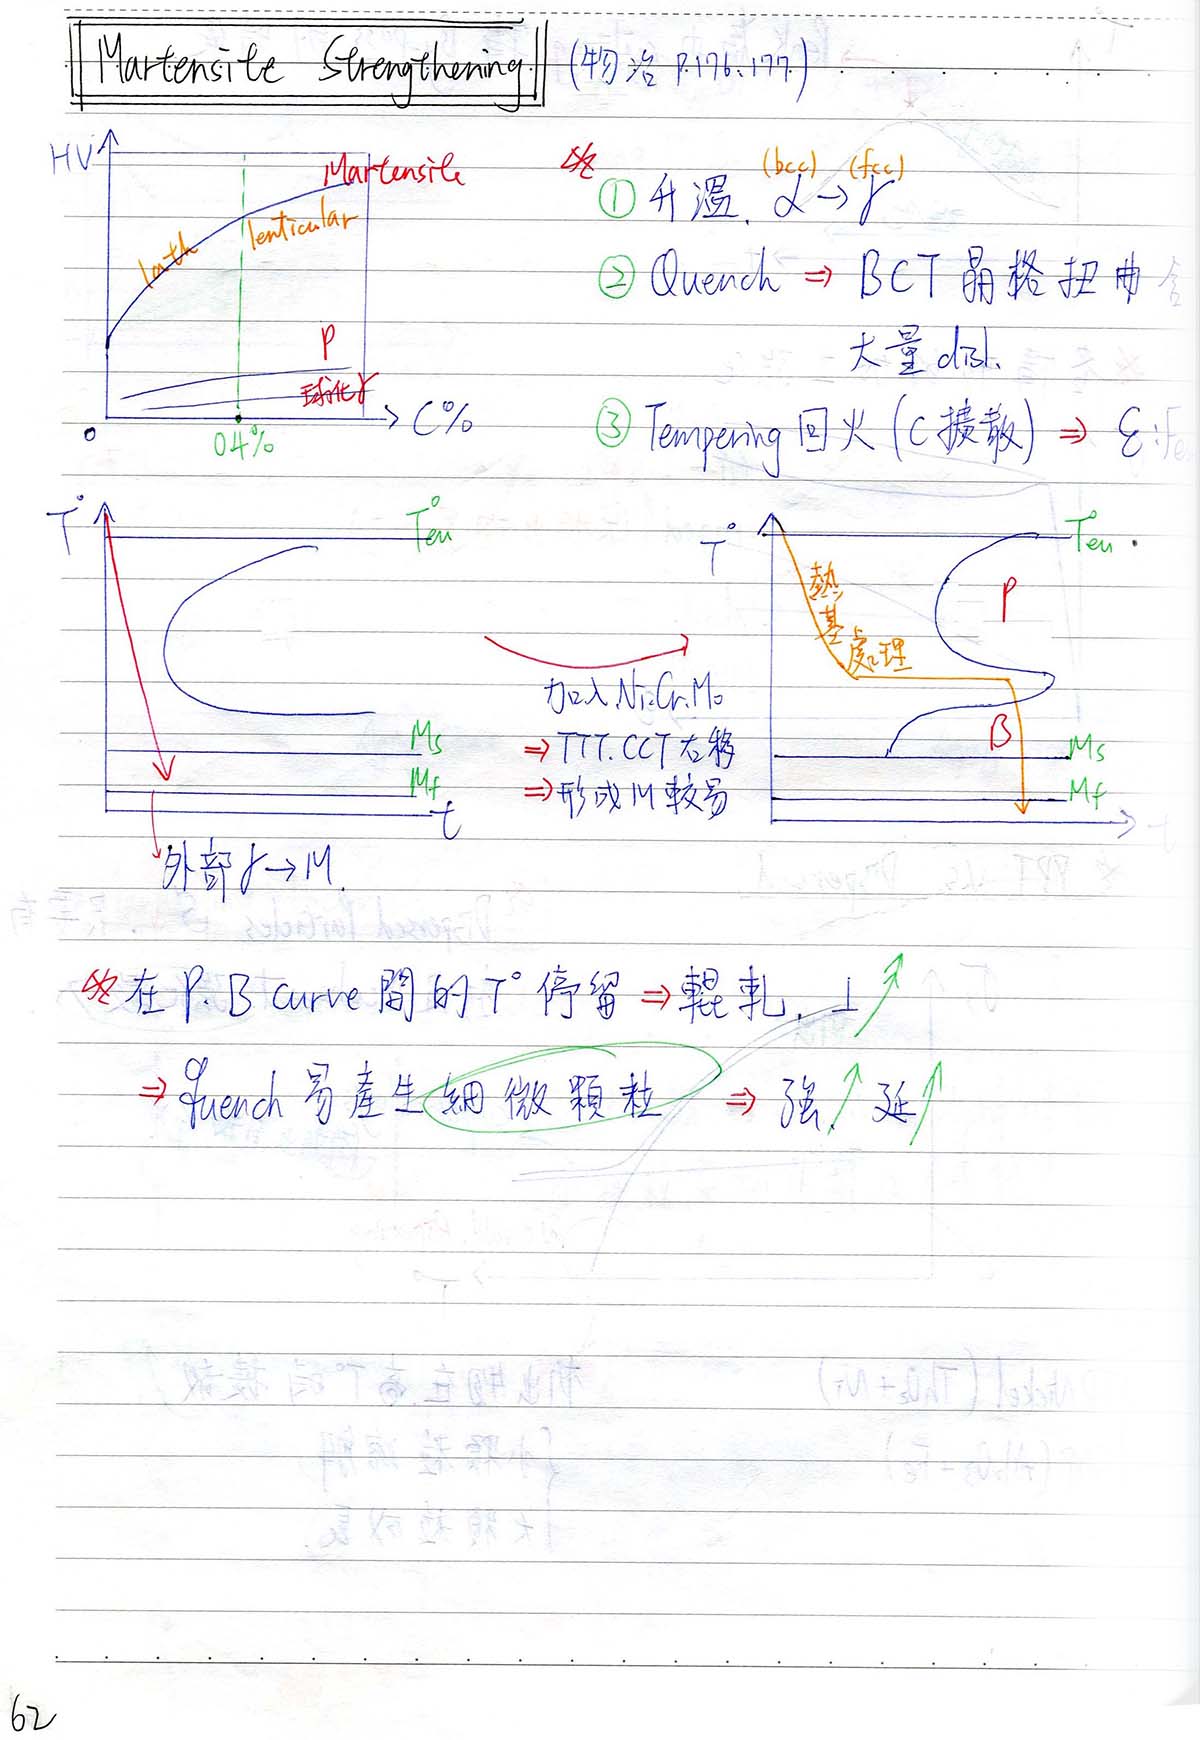 Martensite Strengthening (物冶 P.176.177.)
HV
Martensite
lath
lenticular
P
球化γ
0
0.4%
C%
(bcc) (fcc)
① 升溫. α→γ
② Quench ⇒ BCT 晶格扭曲含
大量disl.
③ Tempering 回火 (C擴散) ⇒ ε:Fe
T°
Teu
Ms
Mf
t
外部γ→M.
加入Ni.Cr.Mo
⇒TTT.CCT右移
⇒形成M較易
T°
T°eu
熱基處理
P
B
Ms
Mf
t
在P.B curve 間的T°停留⇒輥軋. ⊥↗
⇒ quench 易產生細微顆粒 ⇒ 強↗. 延↗
62